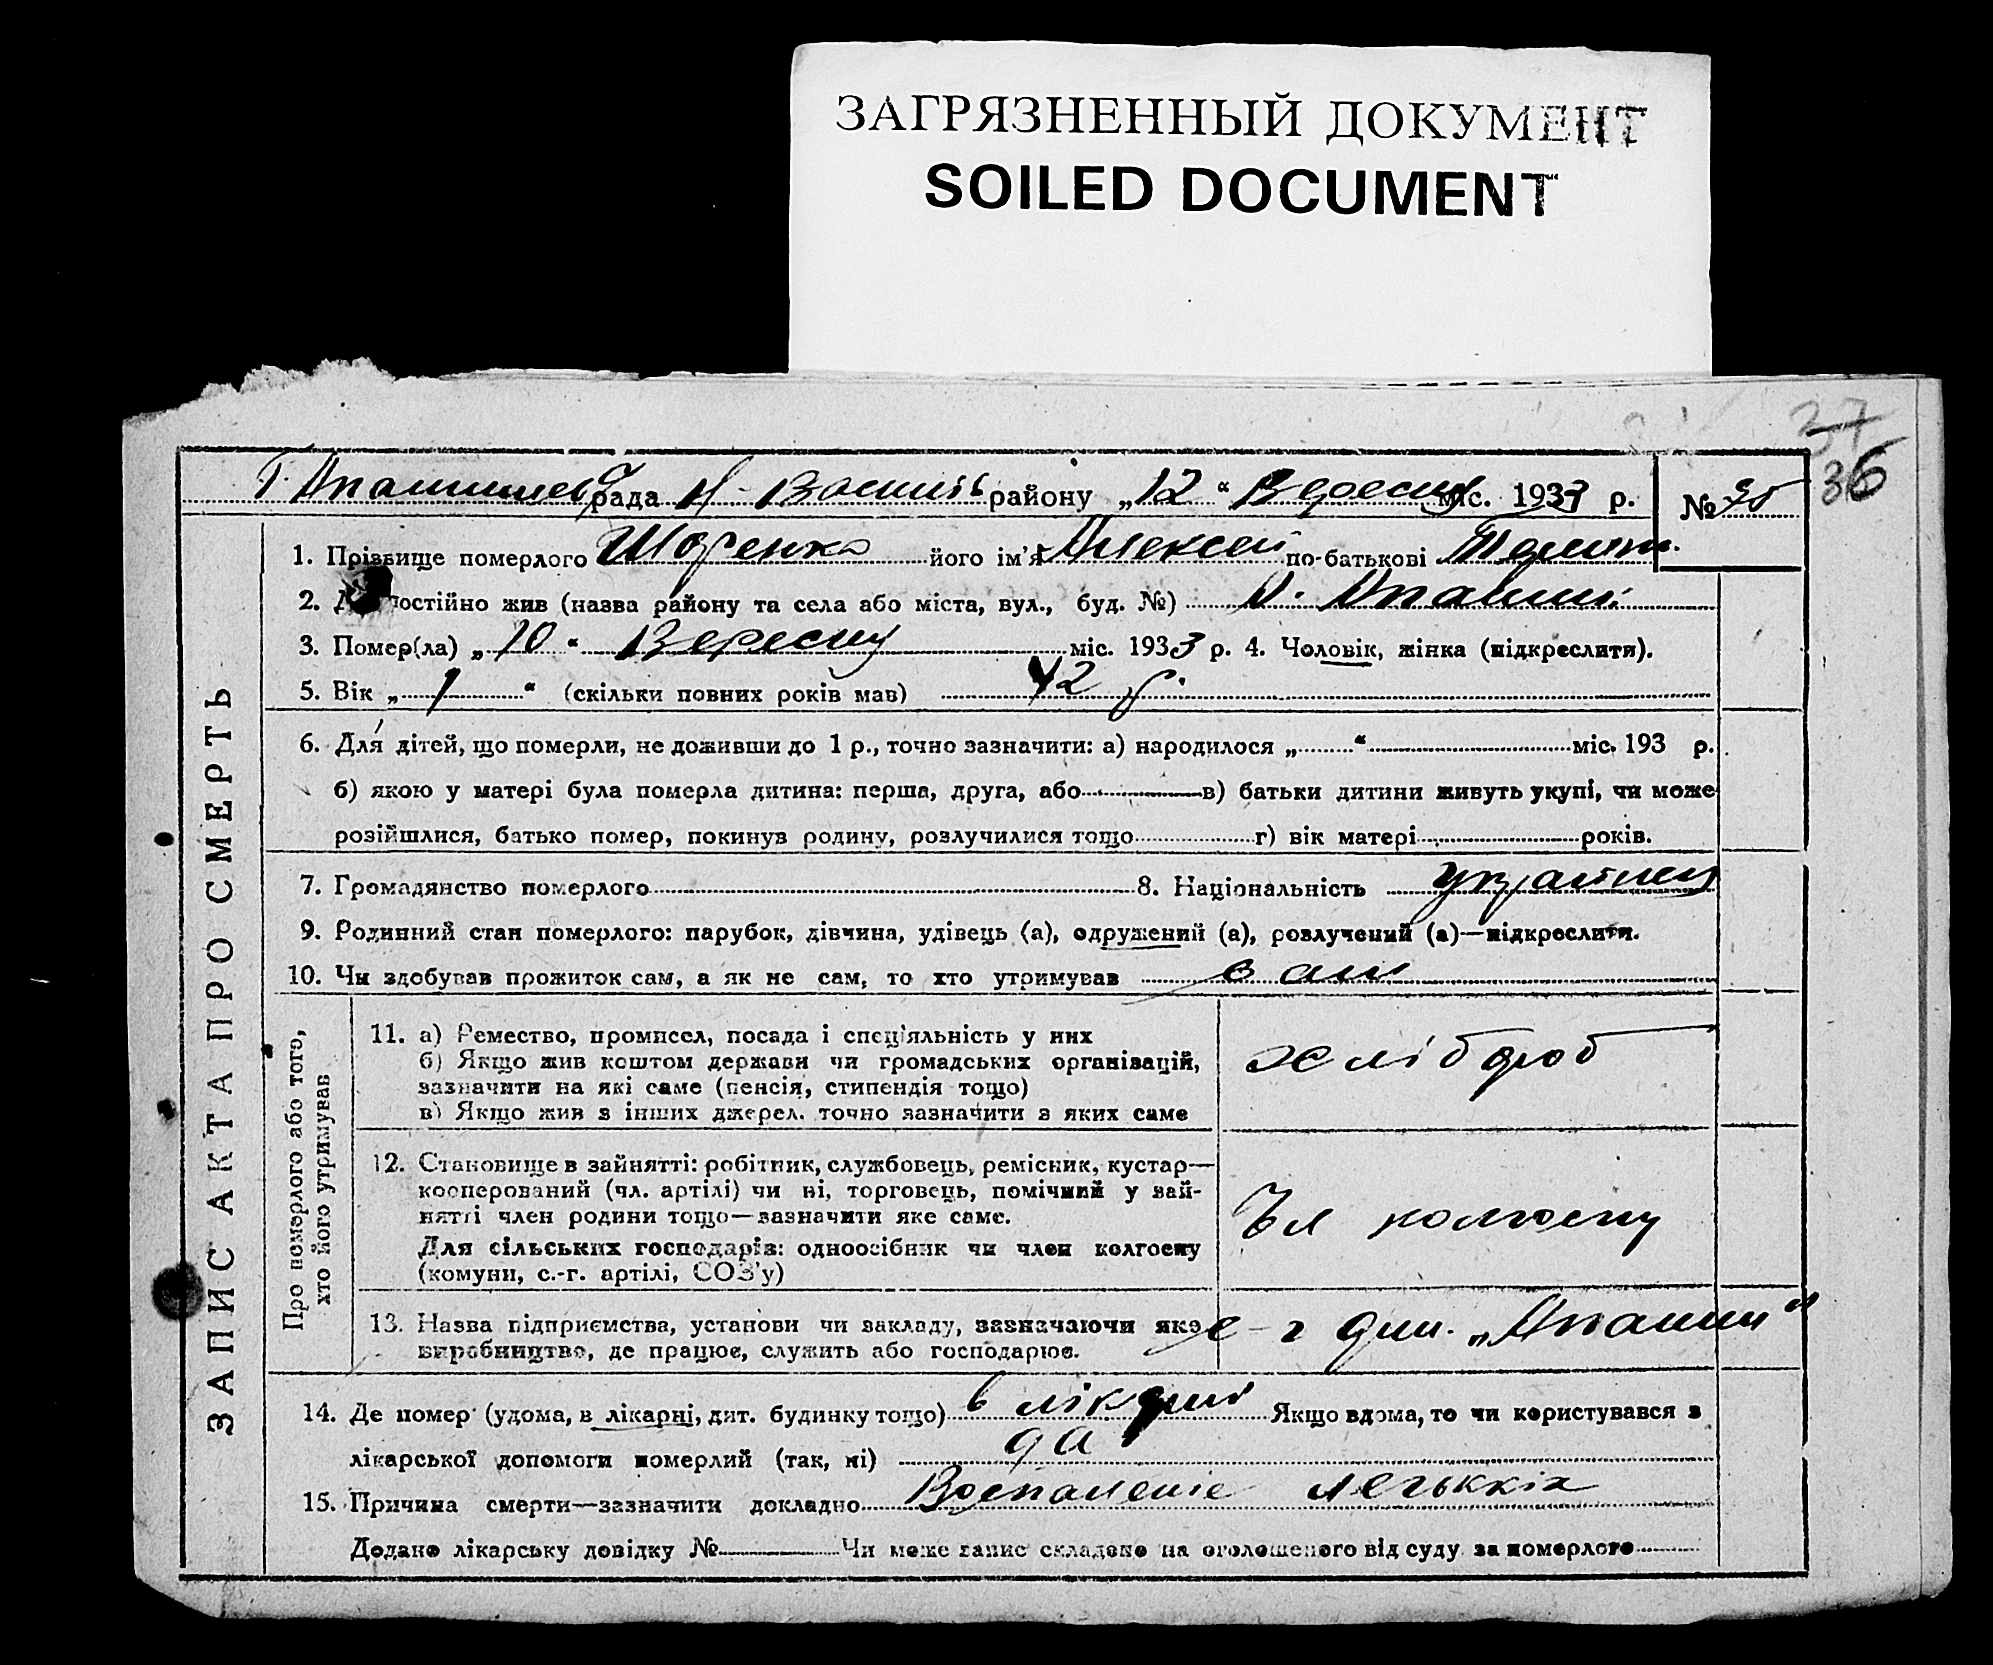 ЗАГРЯЗНЕННЫЙ ДОКУМЕНТ
SOILED DOCUMENT
37
36
рада району „12“ міс. 1933 р. №
1. Прізвище померлого його ім'я Алексей по-батькові
2. постійно жив (назва району та села або міста, вул., буд. №)
3. Помер(ла) „10“ Вересну міс. 1933 р. 4. Чоловік, жінка (підкреслити).
5. Вік „1“ (скільки повних років мав) 42 р.
6. Для дітей, що померли, не доживши до 1 р., точно зазначити: а) народилося „ “ міс. 193 р.
б) якою у матері була померла дитина: перша, друга, або в) батьки дитини живуть укупі, чи може
розійшлися, батько помер, покинув родину, розлучилися тощо г) вік матері років.
7. Громадянство померлого 8. Національність
9. Родинний стан померлого: парубок, дівчина, удівець (а), одружений (а), розлучений (а)—підкреслити.
10. Чи здобував прожиток сам, а як не сам, то хто утримував сам
ЗАПИС АКТА ПРО СМЕРТЬ
Про померлого або того,
хто його утримував
11. а) Ремество, промисел, посада і спец'яльність у них
б) Якщо жив коштом держави чи громадських організацій,
зазначити на які саме (пенсія, стипендія тощо)
в) Якщо жив з інших джерел. точно зазначити з яких саме
хліброб
12. Становище в зайнятті: робітник, службовець, ремісник, кустар—
кооперований (чл. артілі) чи ні, торговець, помічний у зай-
нятті член родини тощо—зазначити яке саме.
Для сільських господарів: одноосібник чи член колгоспу
(комуни, с.-г. артілі, СОЗ'у)
Чл колгоспу
13. Назва підприємства, установи чи закладу, зазначаючи яке
виробництво, де працює, служить або господарює.
14. Де помер (удома, в лікарні, дит. будинку тощо) в лікарні Якщо вдома, то чи користувався з
лікарської допомоги померлий (так, ні) да
15. Причина смерти—зазначити докладно Воспаленіе легьккіх
Додано лікарську довідку № Чи може запис складено на оголошеного від суду за померлого